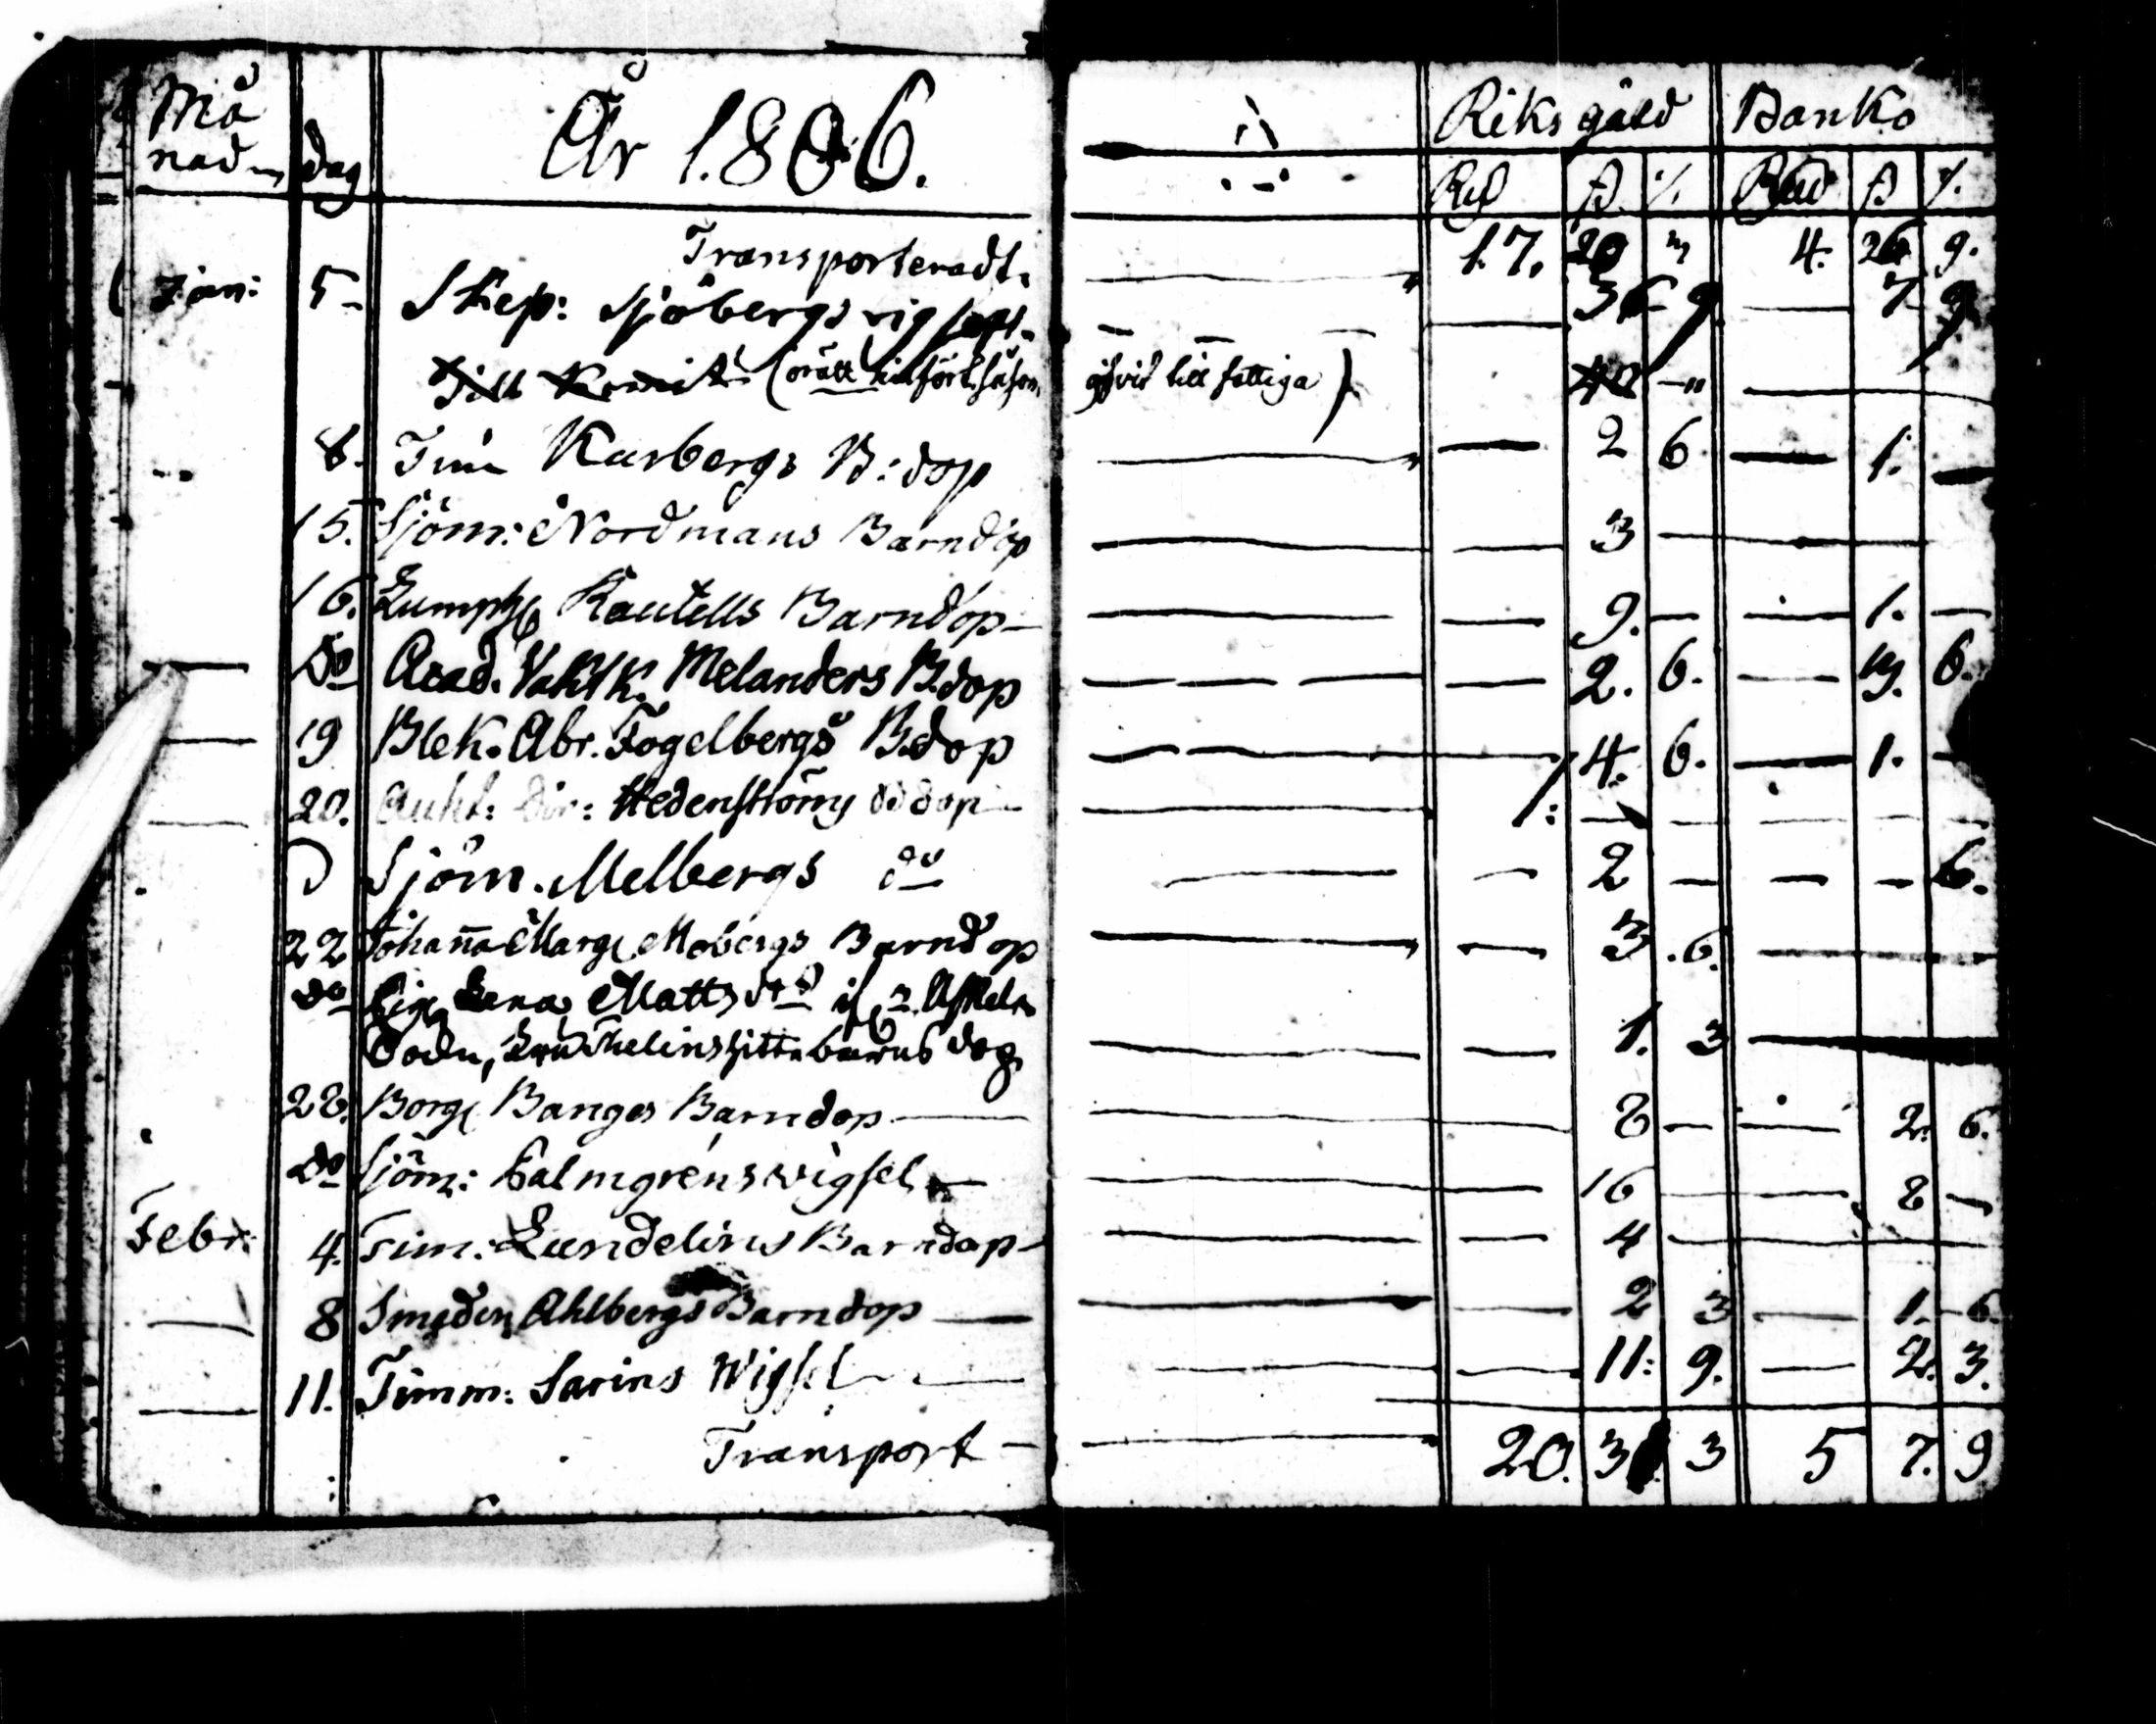 Må Riksgäld Banko
nad dag År 1.806. Rd ß % Rd ß %
Transporteradt. 17. 20 4. 26 9.
Jan: 5 Skep: Sjöbergs vigsel 36 9 7 9
Till (orätt infört såsom gifvit till fattiga)
8. Tim Karbergs B:dop 2 6 1.
15. Sjöm: Nordmans Barndop 3
16. Kautells Barndop 9. 1.
Do Acad. Vaktk. Melanders B.dop 2. 6. 3. 6.
19 Blek. Abr. Fogelbergs B.dop 4. 6. 1.
20. Aukt: Dir: Hedenströms dop 1:
D Sjöm. Melbergs do 2 6.
22 Johanna Marg Mobergs Barndop 3. 6.
Do Pig Lena Matts dtr
barns dop 1. 3
28. Borg Banges Barndop 8 2. 6.
Do Sjöm: Calmgrens vigsel 16 8
Febr: 4. Tim: Lundelins Barndop 4
8 Smeden Ahlbergs Barndop 2 3 1. 6.
11. Timm: Sarins Wigsel 11: 9. 2. 3.
Transport 20. 3 5 7. 9